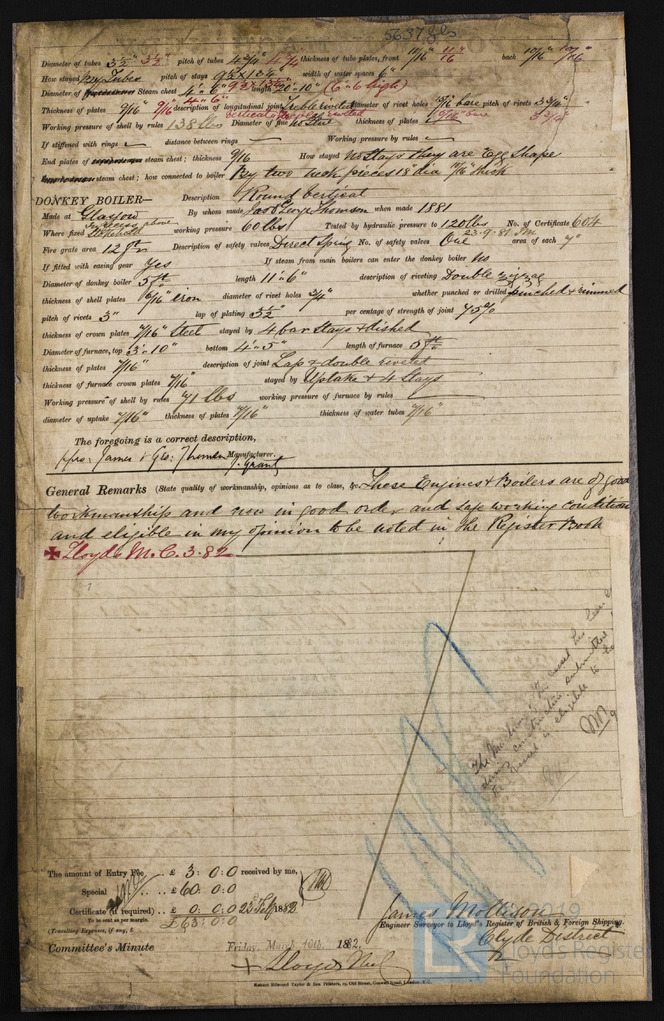 5637 Gls
Diameter of tubes 3½" 3½" pitch of tubes 4¾" 4¾ thickness of tube plates, front 11/16" 11/16 back 10/16" 10/16"
How stayed By Tubes pitch of stays width of water spaces 6"
Diameter of Steam chest 4'. 6" length 20'.10" (6'.6 high)
Thickness of plates 9/16" 9/16 description of longitudinal joint Treble riveted diameter of rivet holes 15/16 bare pitch of rivets 3 3/16"
Working pressure of shell by rules 138 lbs Diameter of flue thickness of plates
If stiffened with rings distance between rings Working pressure by rules
End plates of steam chest; thickness 9/16 How stayed No Stays they are Egg Shape
steam chest; how connected to boiler By two neck pieces 18 dia 11/16 thick
DONKEY BOILER— Description Round Vertical
Made at Glasgow By whom made Jas & George Thomson when made 1881
Where fixed Stokehold working pressure 60 lbs Tested by hydraulic pressure to 120 lbs No. of Certificate 604
23.9.81
Fire grate area 12 ft Description of safety valves Direct Spring No. of safety valves One area of each 7"
If fitted with easing gear Yes If steam from main boilers can enter the donkey boiler No
Diameter of donkey boiler 5 ft length 11'.6" description of riveting Double zigzag
thickness of shell plates 6/16" iron diameter of rivet holes ¾" whether punched or drilled punched & rimmed
pitch of rivets 3" lap of plating 3½" per centage of strength of joint 75%
thickness of crown plates 7/16" Steel stayed by 4 bar Stays & dished
Diameter of furnace, top 3'.10" bottom 4'.5" length of furnace 5 ft
thickness of plates 7/16" description of joint Lap & double riveted
thickness of furnace crown plates 7/16" stayed by Uptake & 4 Stays
Working pressure of shell by rules 71 lbs working pressure of furnace by rules
diameter of uptake 7/16" thickness of plates 7/16" thickness of water tubes 7/16"
The foregoing is a correct description,
pro. James & Geo: Thomson Manufacturer.
J. Grant
General Remarks (State quality of workmanship, opinions as to class, &c. These Engines & Boilers are of good
workmanship and now in good order and safe working condition
and eligible in my opinion to be noted in the Register Book
✠ Lloyds M.C. 3.82
The Machinery
The amount of Entry Fee £ 3: 0: 0 received by me,
Special £ 60: 0: 0
Certificate (if required) £ 0: 0: 0 23 Feb 1882
To be sent as per margin.
£63: 0: 0
(Travelling Expenses, if any, £
James Mollison
Engineer Surveyor to Lloyd's Register of British & Foreign Shipping.
Clyde District
Committee's Minute Friday, March 10th, 1882.
+ Lloyds M.C.
© 2019
Lloyd's Register
Foundation